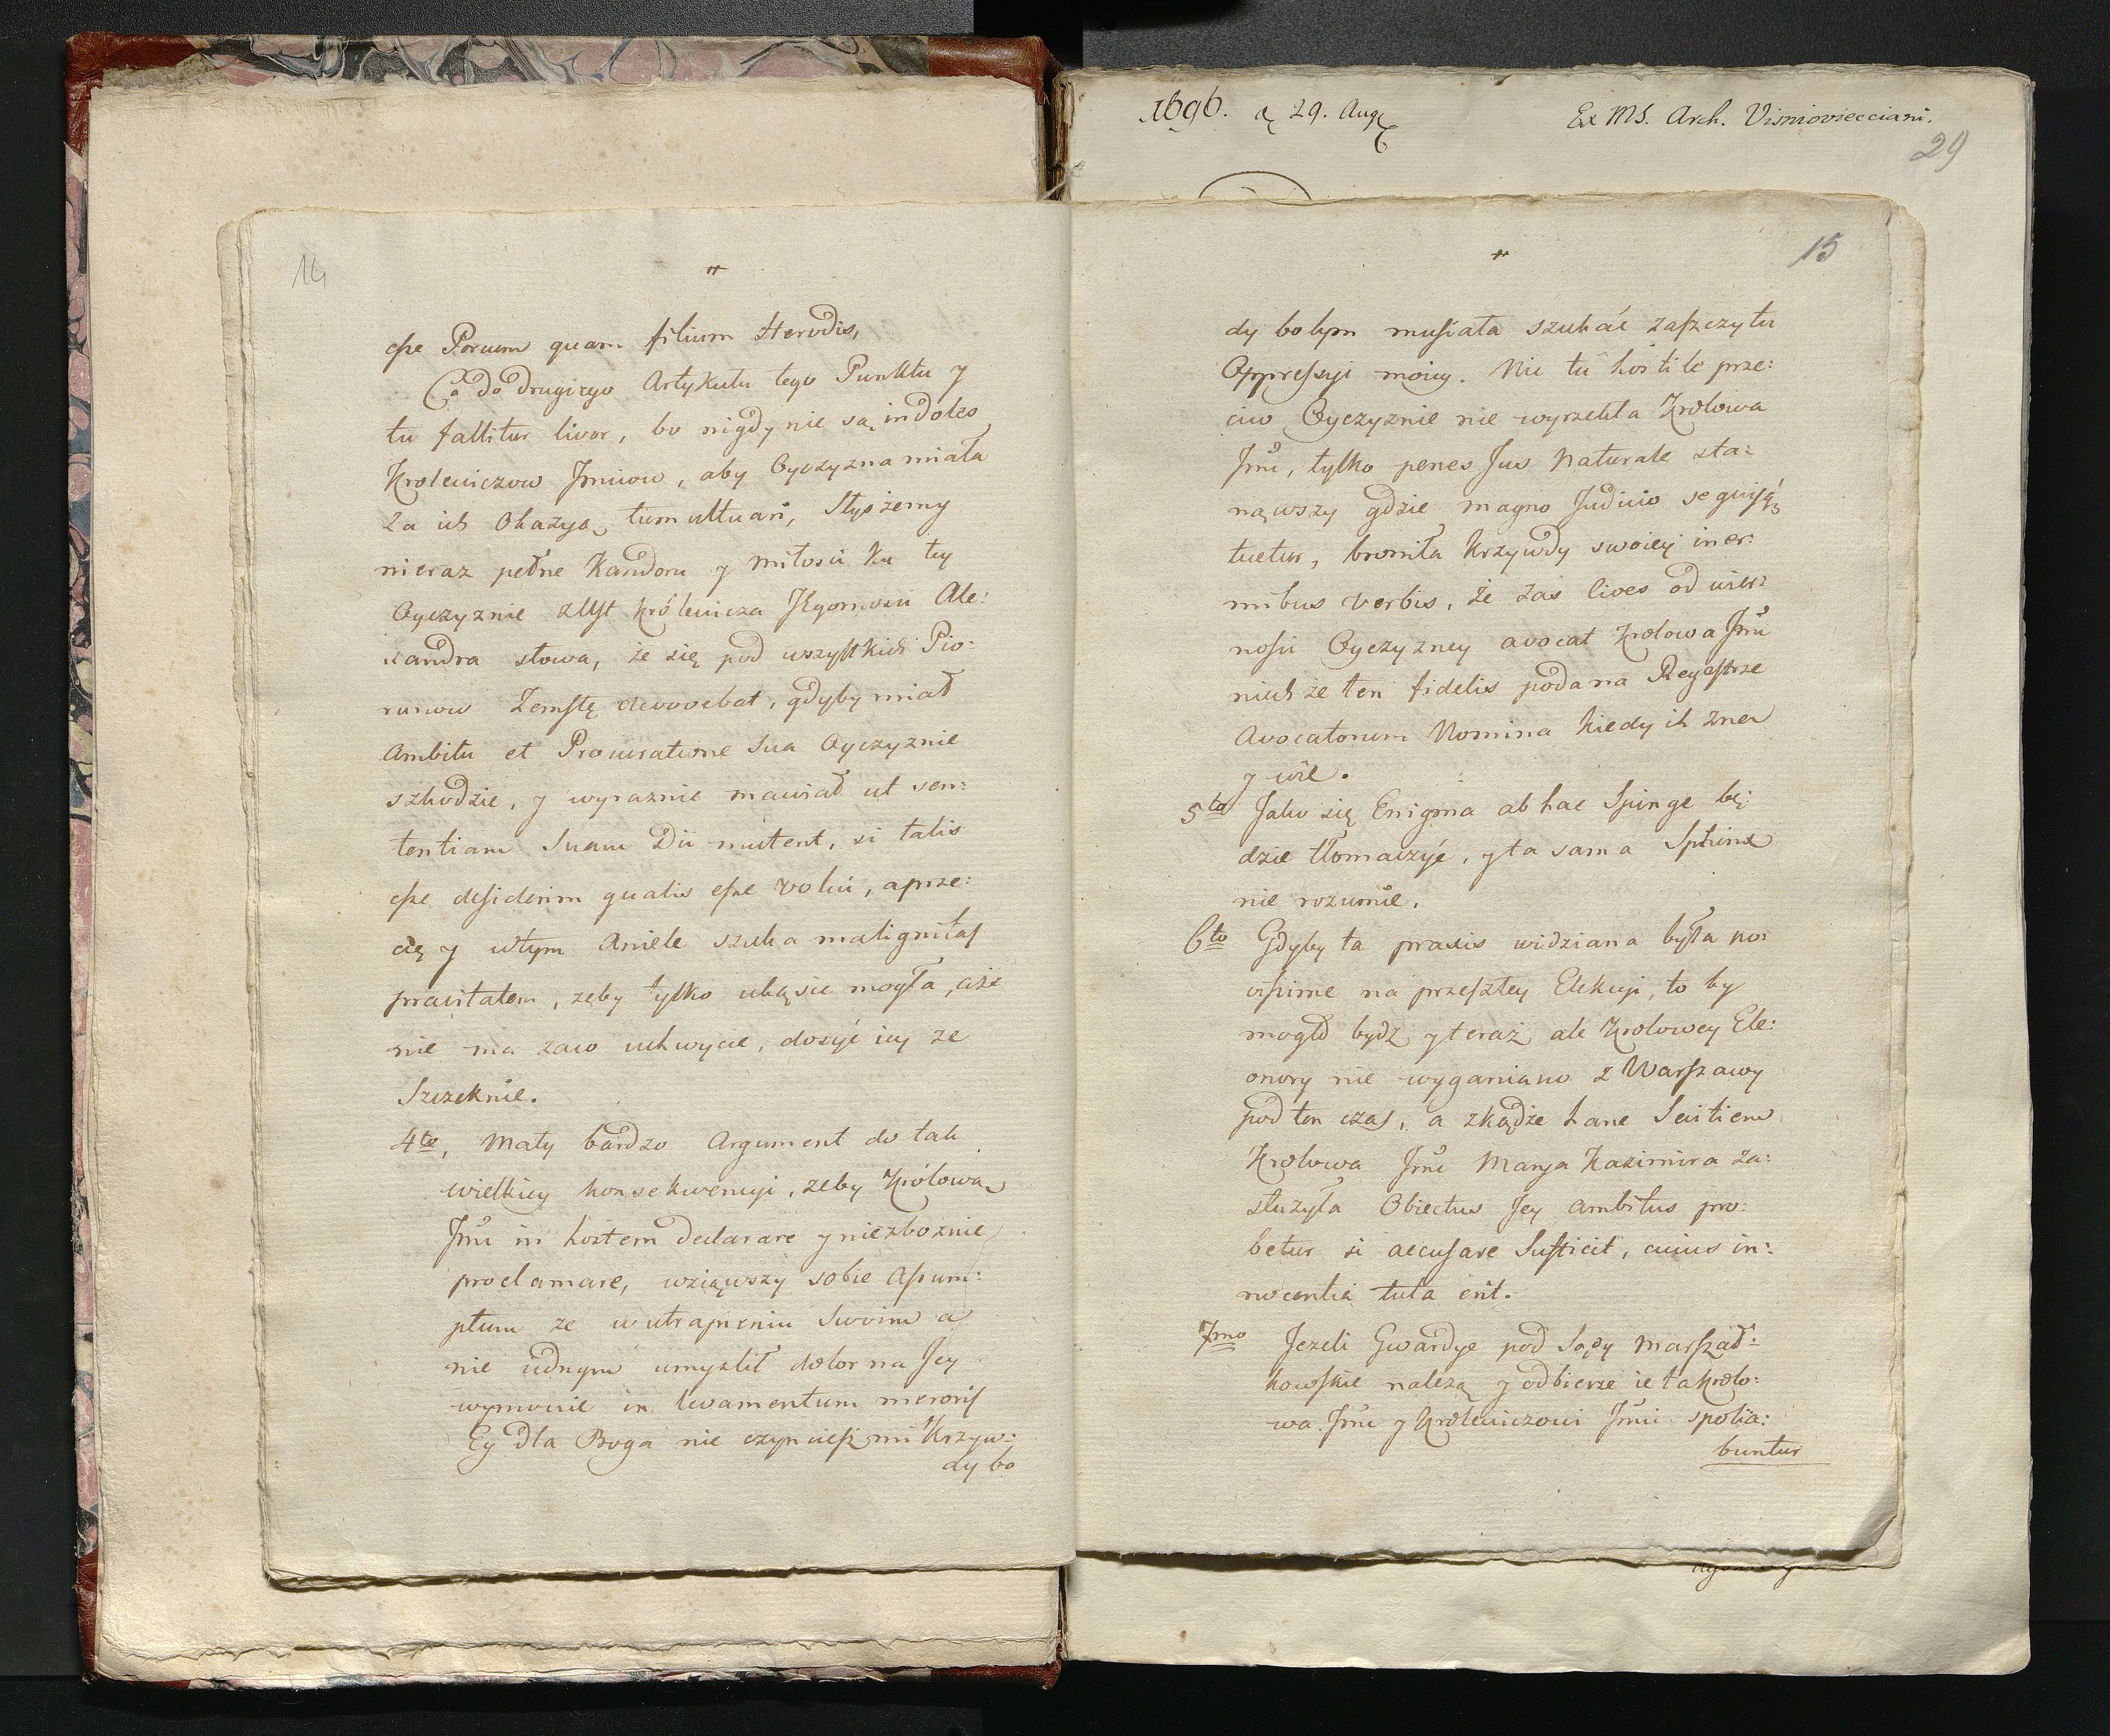 14
esse Porcum quam filium Herodis,
Co do drugiego Artykułu tego Punktu y
tu fallitur livor, bo nigdy nie są indoles
Krolewiczow Jmciow, aby Oyczyzna miała
Za ich Okazyą tumultuari, Słyszemy
nieraz pełne Kandoru y miłosci ku tey
Oyczyznie z Ust Królewicza Alex:
andra słowa, że się pod wszystkich Pio:
runow Zemstę devovebat, gdyby miał
Ambitu et Procuratione Sua Oyczyznie
szkodzic, y wyraznie mawiał ut sen:
tentiam Suam Dii mutent, si talis
esse desiderim qualis esse volui, a prze:
cię y w tym Aniele szuka malignitas
pravitatem, zeby tylko ukąsic mogła, aże
nie ma zaco uchwycic, dosyć iey ze
Szczeknie.
4to, Mały bardzo Argument do tak
wielkiey konsekwencyi, zeby Królową
Jmci in hostem declarare y niezboznie
proclamare, wziąwszy sobie Assum:
ptum ze w utrapieniu Swoim a
nie iednym umyslił dolor na Jey
wymowie in levamentum meroris
Ey dla Boga nie czyncież mi Krzyw:
dy bo
1696. d 29. Aug
Ex MS. Arch. Visniovecciani.
29
15
dy bobym musiała szukać zaszczytu
Oppressyi moiey. Nic tu hostile prze:
ciw Oyczyznie nie wyrzekła Krolowa
Jmci, tylko penes Jus Naturale sta:
nąwszy gdzie magno Judicio se quisq
tuetur, broniła Krzywdy swoiey iner:
mibus verbis, że zas Cives od wier:
nosci Oyczyzney avocat Krolowa Jmci
niechże ten fidelis poda na Reyestrze
Avocatorum Nomina kiedy ich zna
y wie.
5to Jako się Enigma ab hac Spinge bę:
dzie tłomaczyć, y ta sama Sphinx
nie rozumie.
6to Gdyby ta praxis widziana była no:
vissime na przeszłey Elekcyi, to by
mogło bydz y teraz ale Krolowey Ele:
onory nie wyganiano z Warszawy
pod ten czas, a zkądże hanc Sortem
Krolowa Jmci Marya Kazimira za:
służyła Obiectus Jey ambitus pro:
betur si accusare Sufficit, cuius in:
nocentia tuta erit.
7mo Jezeli Gwardye pod Sądy Marszał:
kowskie nalezą y odbierze ie ta Krolo:
wa Jmci y Krolewiczowi Jmci spolia:
buntur